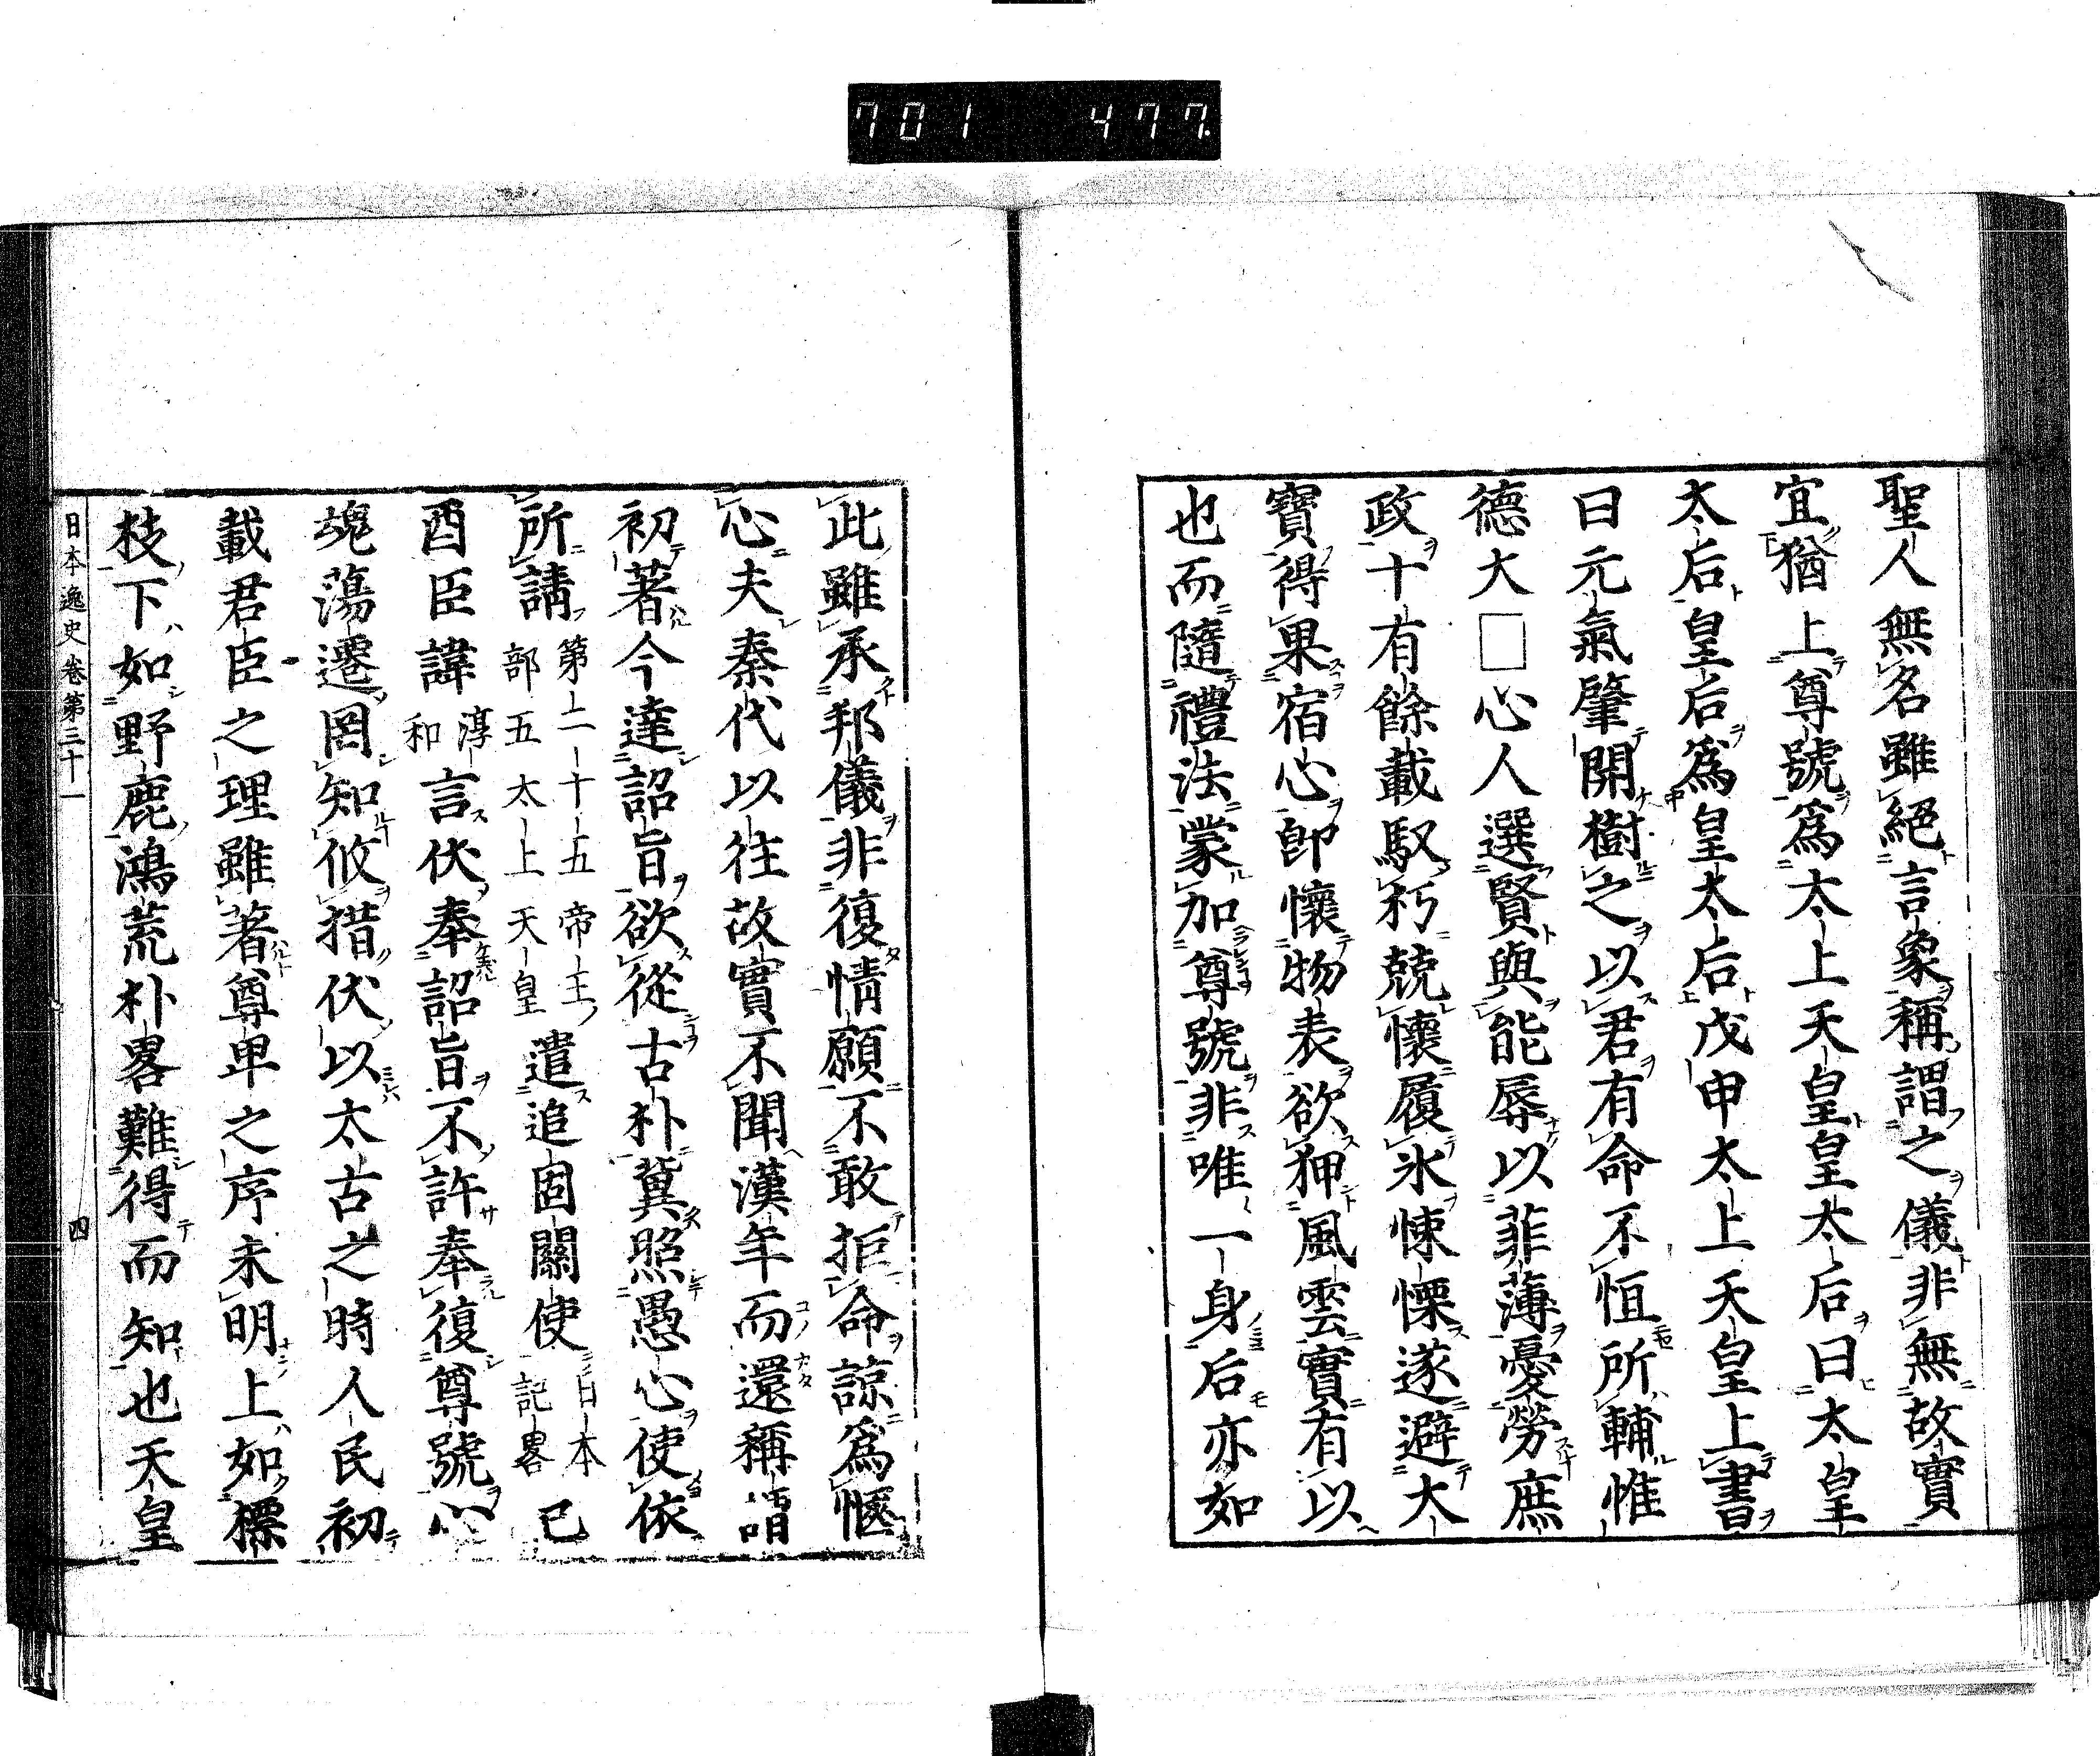 701 477.
聖人無名雖絕言象稱謂之儀非無故實
宜猶上尊號爲太上天皇皇太后曰太皇
太后皇后爲皇太后戊申太上天皇上書
曰元氣肇開樹之以君有命不恒所輔惟
德大□心人選賢與能辱以菲薄憂勞庶
政十有餘載馭朽兢懷履氷悚慄遂避大
寶得果宿心卽懷物表欲狎風雲實有以
也而隨禮法蒙加尊號非唯一身后亦如
此雖承邦儀非復情願不敢拒命諒爲愜
心夫秦代以往故實不聞漢年而還稱謂
初著今達詔旨欲從古朴冀照愚心使依
所請第二十五帝王部五太上天皇遣追固關使日本記畧己
酉臣諱淳和言伏奉詔旨不許奉復尊號心
魂蕩遷罔知攸措伏以太古之時人民初
載君臣之理雖著尊卑之序未明上如標
枝下如野鹿鴻荒朴畧難得而知也天皇
日本逸史卷第三十一 四